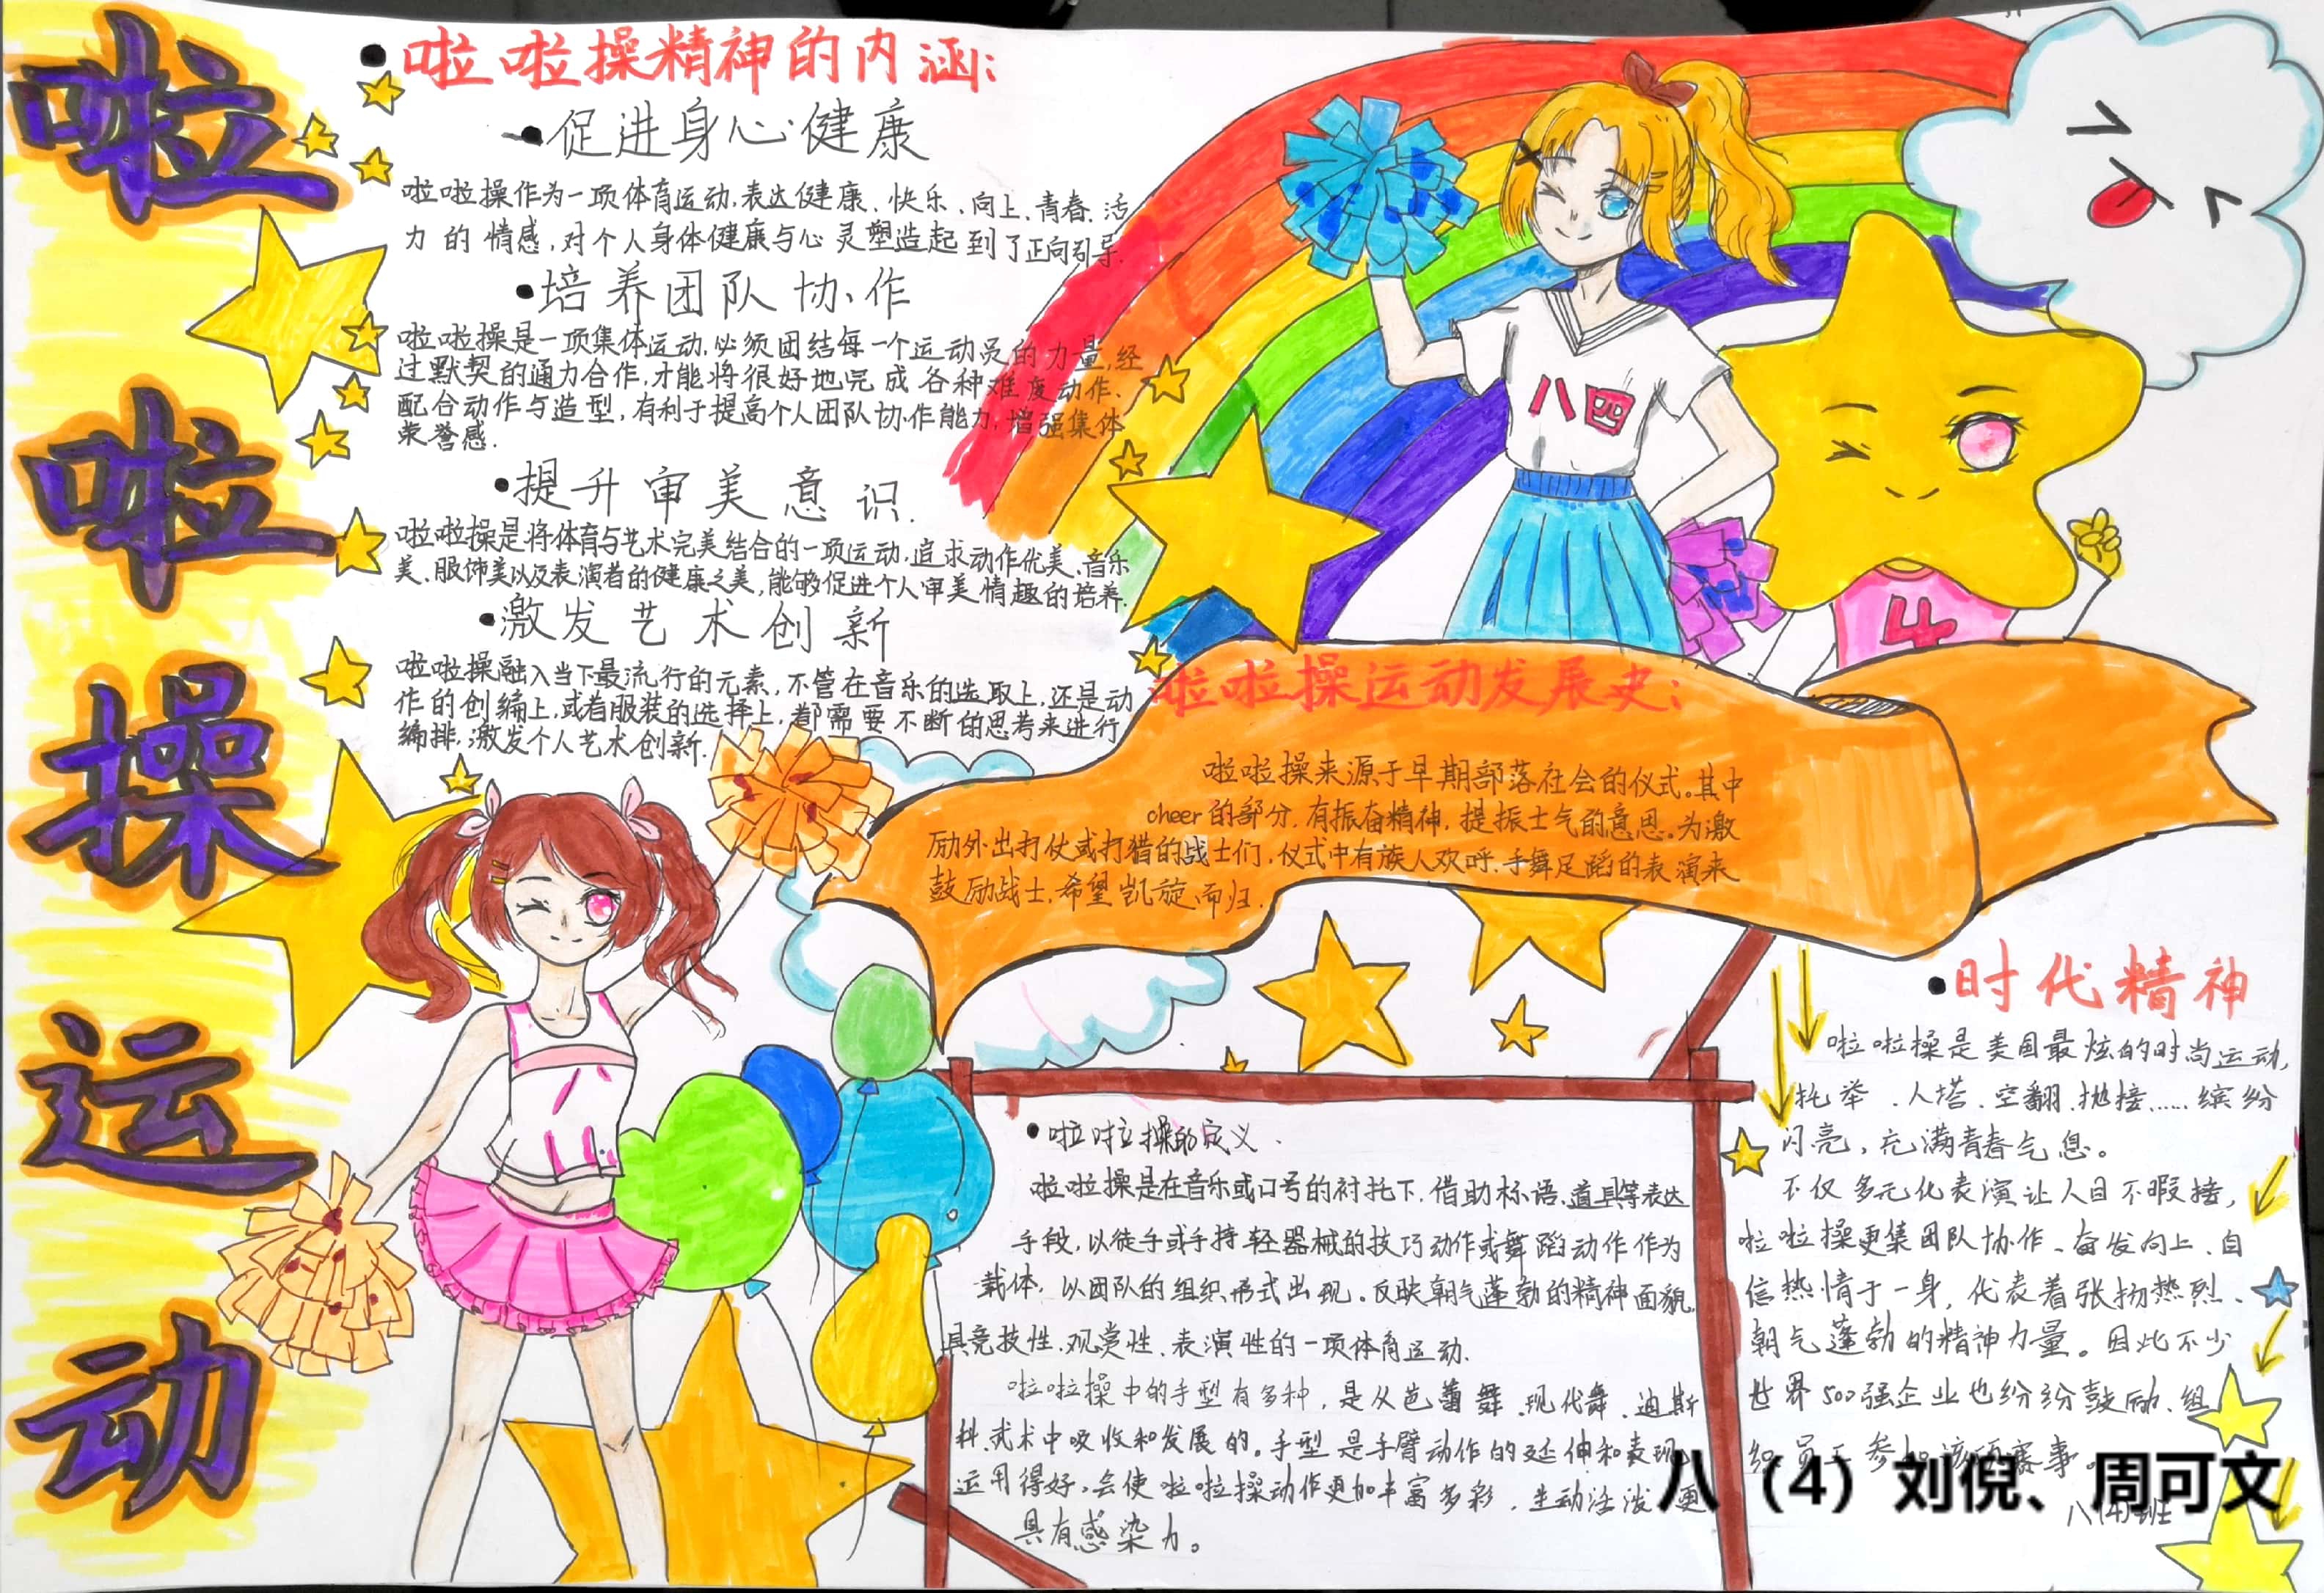 啦啦操运动
啦啦操精神的内涵:
促进身心健康
啦啦操作为一项体育运动,表达健康、快乐、向上、青春、活
力的情感,对个人身体健康与心灵塑造起到了正向引导.
培养团队协作
啦啦操是一项集体运动,必须团结每一个运动员的力量,经
过默契的通力合作,才能将很好地完成各种难度动作、
配合动作与造型,有利于提高个人团队协作能力,增强集体
荣誉感.
提升审美意识.
啦啦操是将体育与艺术完美结合的一项运动,追求动作优美、音乐
美、服饰美以及表演者的健康之美,能够促进个人审美情趣的培养.
激发艺术创新
啦啦操融入当下最流行的元素,不管在音乐的选取上,还是动
作的创编上,或者服装的选择上,都需要不断的思考来进行
编排,激发个人艺术创新.
八四
4
啦啦操运动发展史:
啦啦操来源于早期部落社会的仪式。其中
cheer的部分,有振奋精神,提振士气的意思。为激
励外出打仗或打猎的战士们,仪式中有族人欢呼、手舞足蹈的表演来
鼓励战士,希望凯旋而归.
啦啦操的定义.
啦啦操是在音乐或口号的衬托下,借助标语、道具等表达
手段,以徒手或手持轻器械的技巧动作或舞蹈动作作为
载体,以团队的组织形式出现。反映朝气蓬勃的精神面貌,
具竞技性、观赏性、表演性的一项体育运动.
啦啦操中的手型有多种,是从芭蕾舞、现代舞、迪斯
科、武术中吸收和发展的。手型是手臂动作的延伸和表现,
运用得好,会使啦啦操动作更加丰富多彩,生动活泼更
具有感染力。
时代精神
啦啦操是美国最炫的时尚运动,
托举、人塔、空翻、抛接……缤纷
闪亮,充满青春气息。
不仅多元化表演让人目不暇接,
啦啦操更集团队协作、奋发向上、自
信热情于一身,代表着张扬热烈、
朝气蓬勃的精神力量。因此不少
世界500强企业也纷纷鼓励、组
织员工参加该项赛事。
八(4)班
八（4）刘倪、周可文